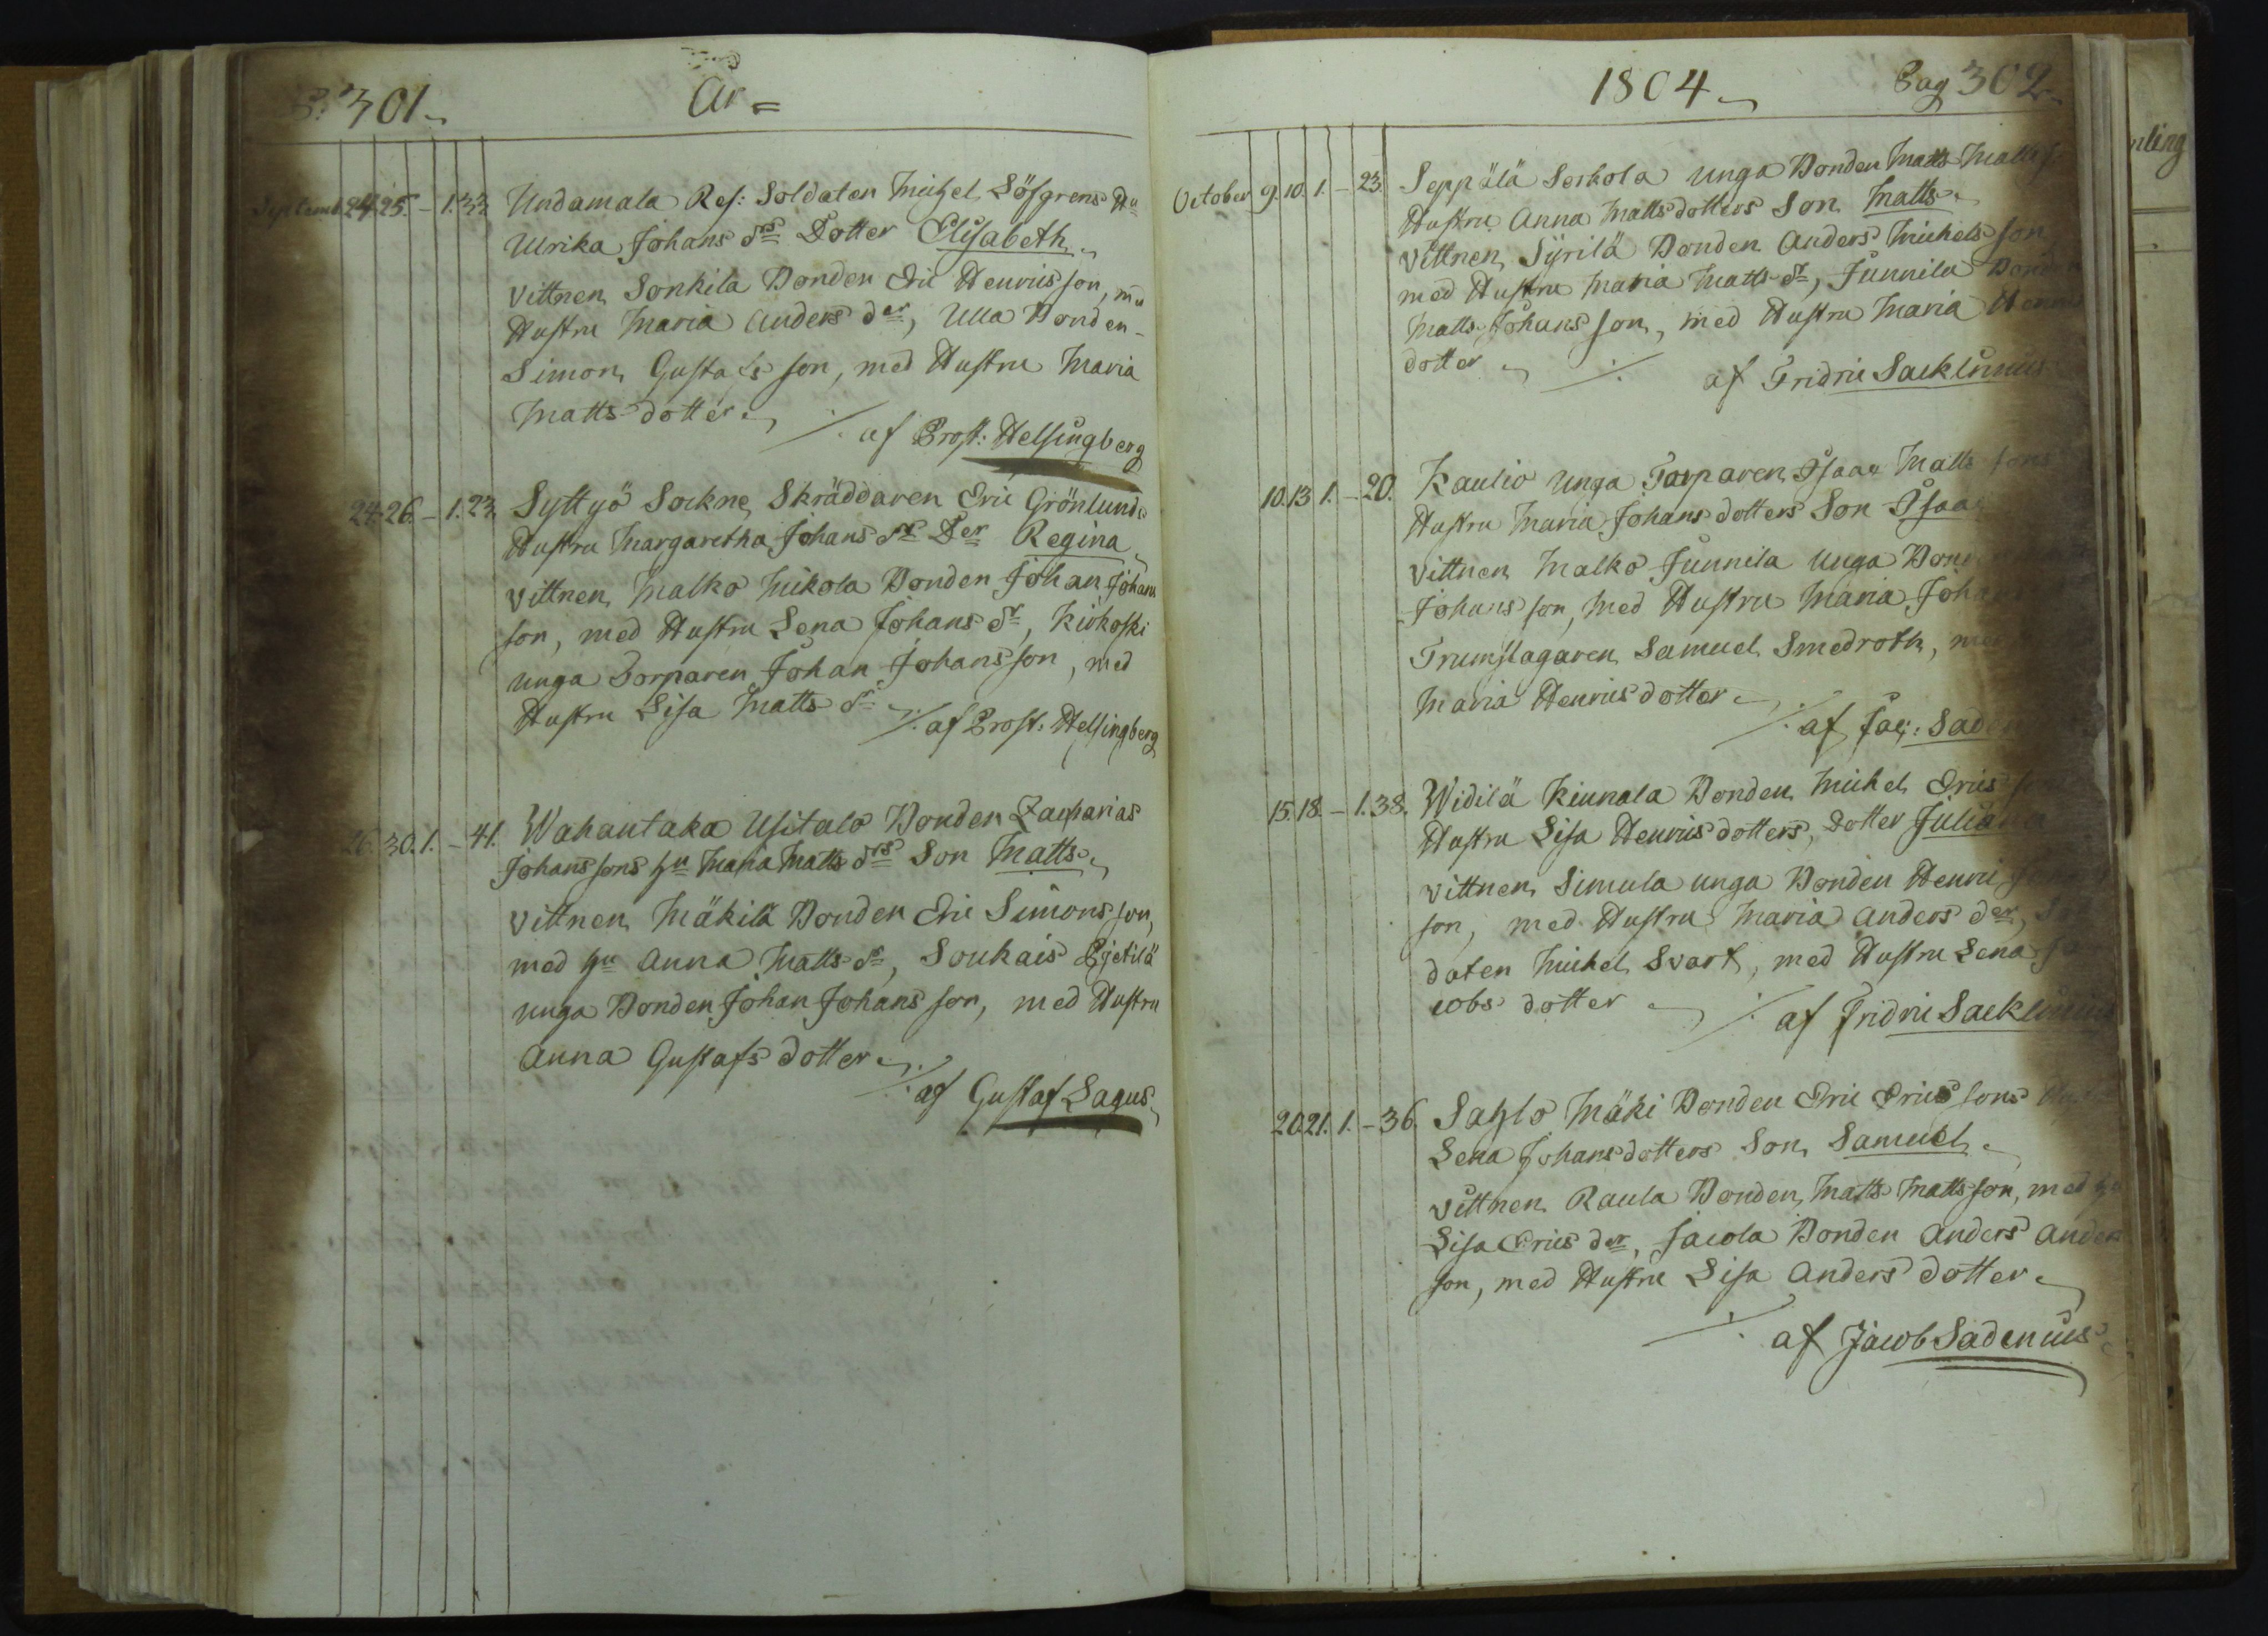 P. 301.
År =
Septemb. 24. 25. - 1. 33. Undamala Res: Soldaten Michel Löfgrens Hu
Ulrika Johans drs Dotter Elisabeth.
vittnen Sonkila Bonden Eric Henricsson, med
Hustru Maria Anders der, Ulla Bonden
Simon Gustafs son, med Hustru Maria
Matts dotter.
af Prost: Helsingberg
24. 26. - 1. 23. Syttyö Sockne Skräddaren Eric Grönlunds
Hustru Margaretha Johans drs Der Regina
vittnen Malko Mikola Bonden Johan Johans
son, med Hustru Lena Johans dr, Kirkoski
unga Torparen Johan Johansson, med
Hustru Lisa Matts dr.
af Prost: Helsingberg
26. 30. 1. - 41. Wahantaka Usitalo Bonden Zacharias
Johanssons hu Maria Matts drs Son Matts.
vittnen Mäkilä Bonden Eric Simonsson,
med hu Anna Matts dr, Soukais Pjetilä
unga Bonden Johan Johansson, med Hustru
Anna Gustafs dotter.
af Gustaf Lagus
1804.
Pag 302.
October 9. 10. 1. - 23. Seppälä Serkola unga Bonden Matts Matts
Hustru Anna Mattsdotters Son Matts.
vittnen Syrilä Bonden Anders Michels son
med Hustru Maria Matts dr, Junnila Bonden
Matts Johansson, med Hustru Maria Henrics
dotter
af Fridric Sacklinius
10. 13. 1. - 20. Kaulio unga Torparen Isaac Matts sons
Hustru Maria Johansdotters Son Isaac
vittnen Malko Junnila unga Bonden
Johansson, med Hustru Maria Johans
Trumslagaren Samuel Smedroth, med
Maria Henricsdotter.
af Jac: Saden
15. 18. - 1. 38. Widilä Kinnala Bonden Michel Erics sons
Hustru Lisa Henricsdotters, Dotter Juliana
vittnen Simula unga Bonden Henric
son, med Hustru Maria Anders der, Sol
daten Michel Svart, med Hustru Lena Ja
cobs dotter
af Fridric Sacklinius
20. 21. 1. - 36. Sahlo Mäki Bonden Eric Erics sons Hust
Lena Johansdotters Son Samuel.
vittnen Raula Bonden Matts Mattsson, med hu
Lisa Erics der, Jacola Bonden Anders Anders
son, med Hustru Lisa Anders dotter.
af Jacob Sadenius